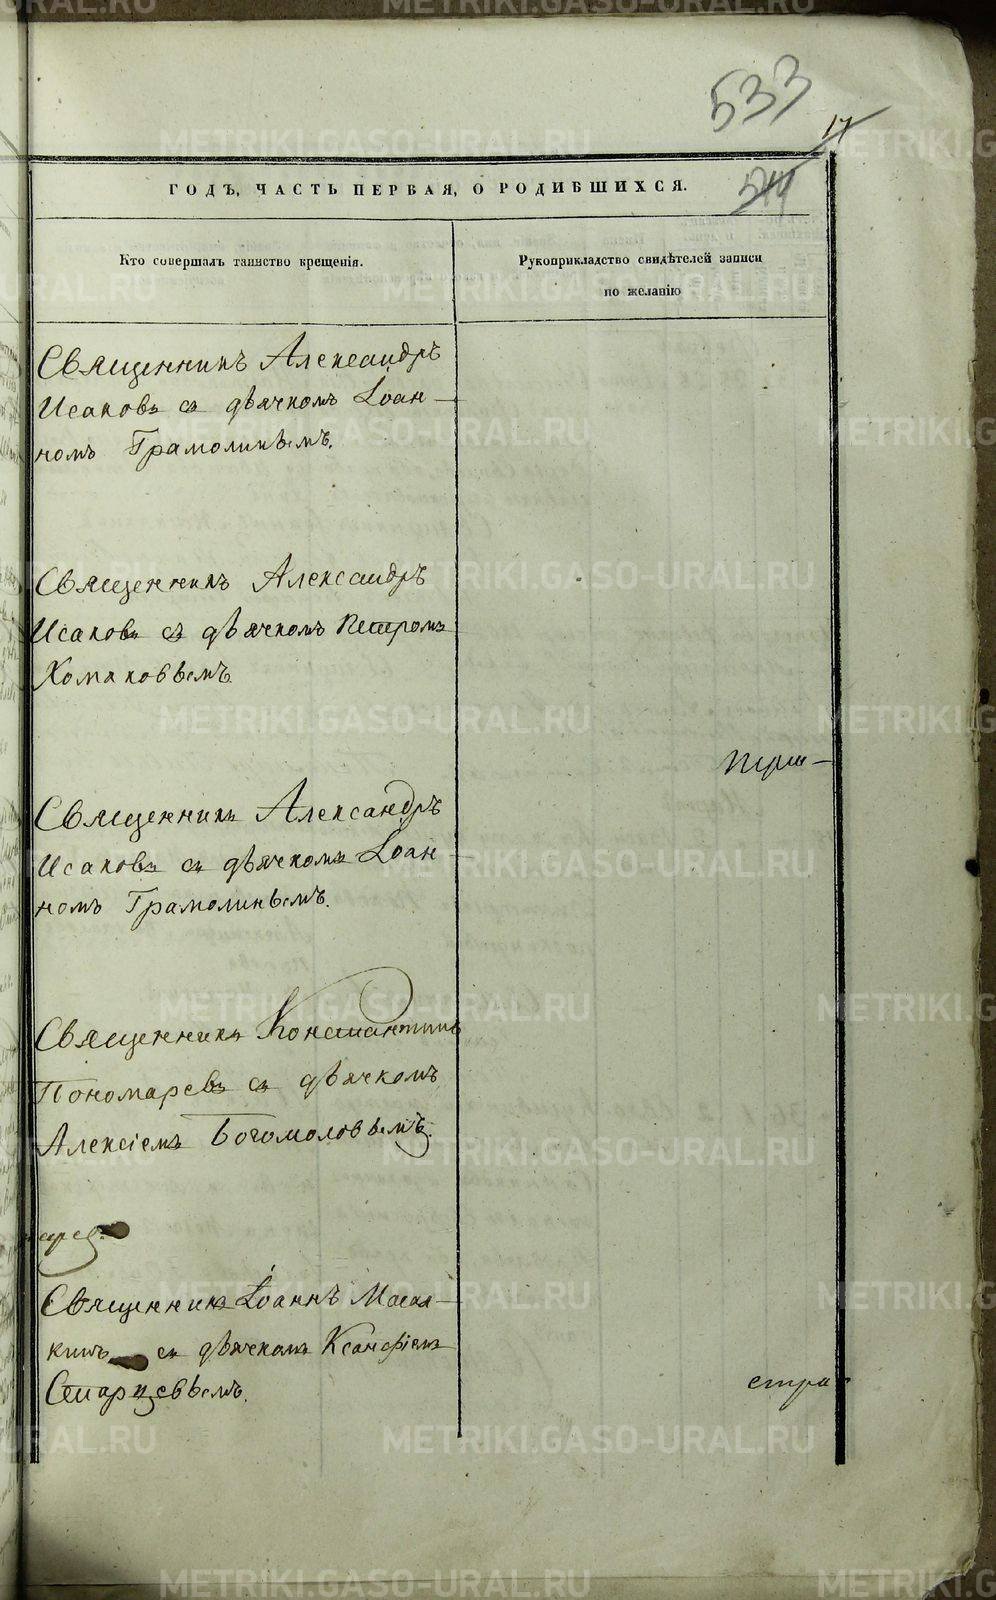 533
17
514
ГОДЪ, ЧАСТЬ ПЕРВАЯ, О РОДИВШИХСЯ.
Кто совершалъ таинство крещенія.
Рукоприкладство свидѣтелей записи
по желанію
Священникъ Александръ
Исаковъ съ дьячкомъ Іоан-
номъ Грамолинымъ.
Священникъ Александръ
Исаковъ съ дьячкомъ Петромъ
Хомяковымъ
Священникъ Александръ
Исаковъ съ дьячкомъ Іоан-
номъ Грамолинымъ.
Священникъ Константинъ
Пономаревъ съ дьячкомъ
Алексіемъ Богомоловымъ.
Священникъ Іоаннъ Масал-
кинъ съ дьячкомъ Ксанфіемъ
Старцевымъ.
METRIKI.GASO-URAL.RU